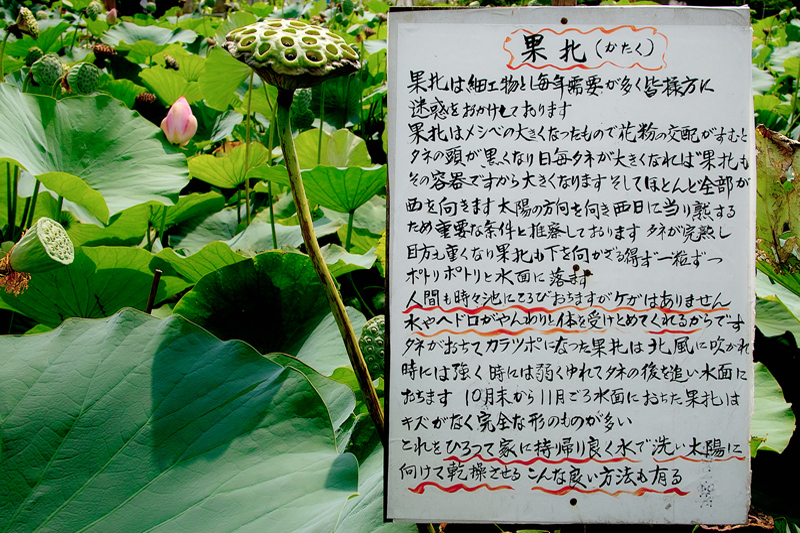 果托(かたく)
果托は細工物とし毎年需要が多く皆様方に
迷惑をおかけしております
果托はメシベの大きくなったもので花粉の交配がすむと
タネの頭が黒くなり日毎タネが大きくなれば果托も
その容器ですから大きくなりますそしてほとんど全部が
西を向きます太陽の方向を向き西日に当り熟する
ため重な条件と推察しております タネが完熟し
目方も重くなり果托も下を向かざる得ず一粒ずつ
ポトリポトリと水面に落ます
人間も時々池にころびおちますがケガはありません
水やヘドロがやんわりと体を受けとめてくれるからです
タネがおちてカラツポになった果托は北風に吹かれ
時には強く時には弱くゆれてタネの後を追い水面に
おちます 10月末から11月ごろ水面におちた果托は
キズがなく完全な形のものが多い
これをひろって家に持ち帰り良く水で洗い太陽に
向けて乾操させる こんな良い方法も有る